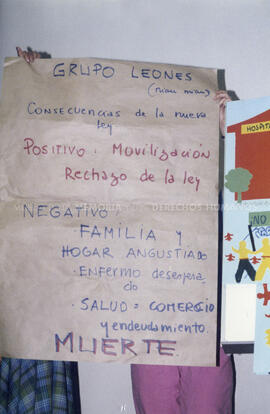 GRUPO LEONES
(miau miau)
CONSECUENCIAS de la nueva
ley
POSITIVO: Movilización
Rechazo de la ley
NEGATIVO
· FAMILIA y
HOGAR ANGUSTIADO
· ENFERMO desespera
do
· SALUD = COMERCIO
y endeudamiento.
MUERTE
HOSPITA
NO